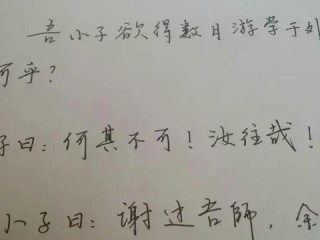 吾小子欲得数月游学于外
可乎？
子曰：何其不可！汝往哉！
小子曰：谢过吾師，余